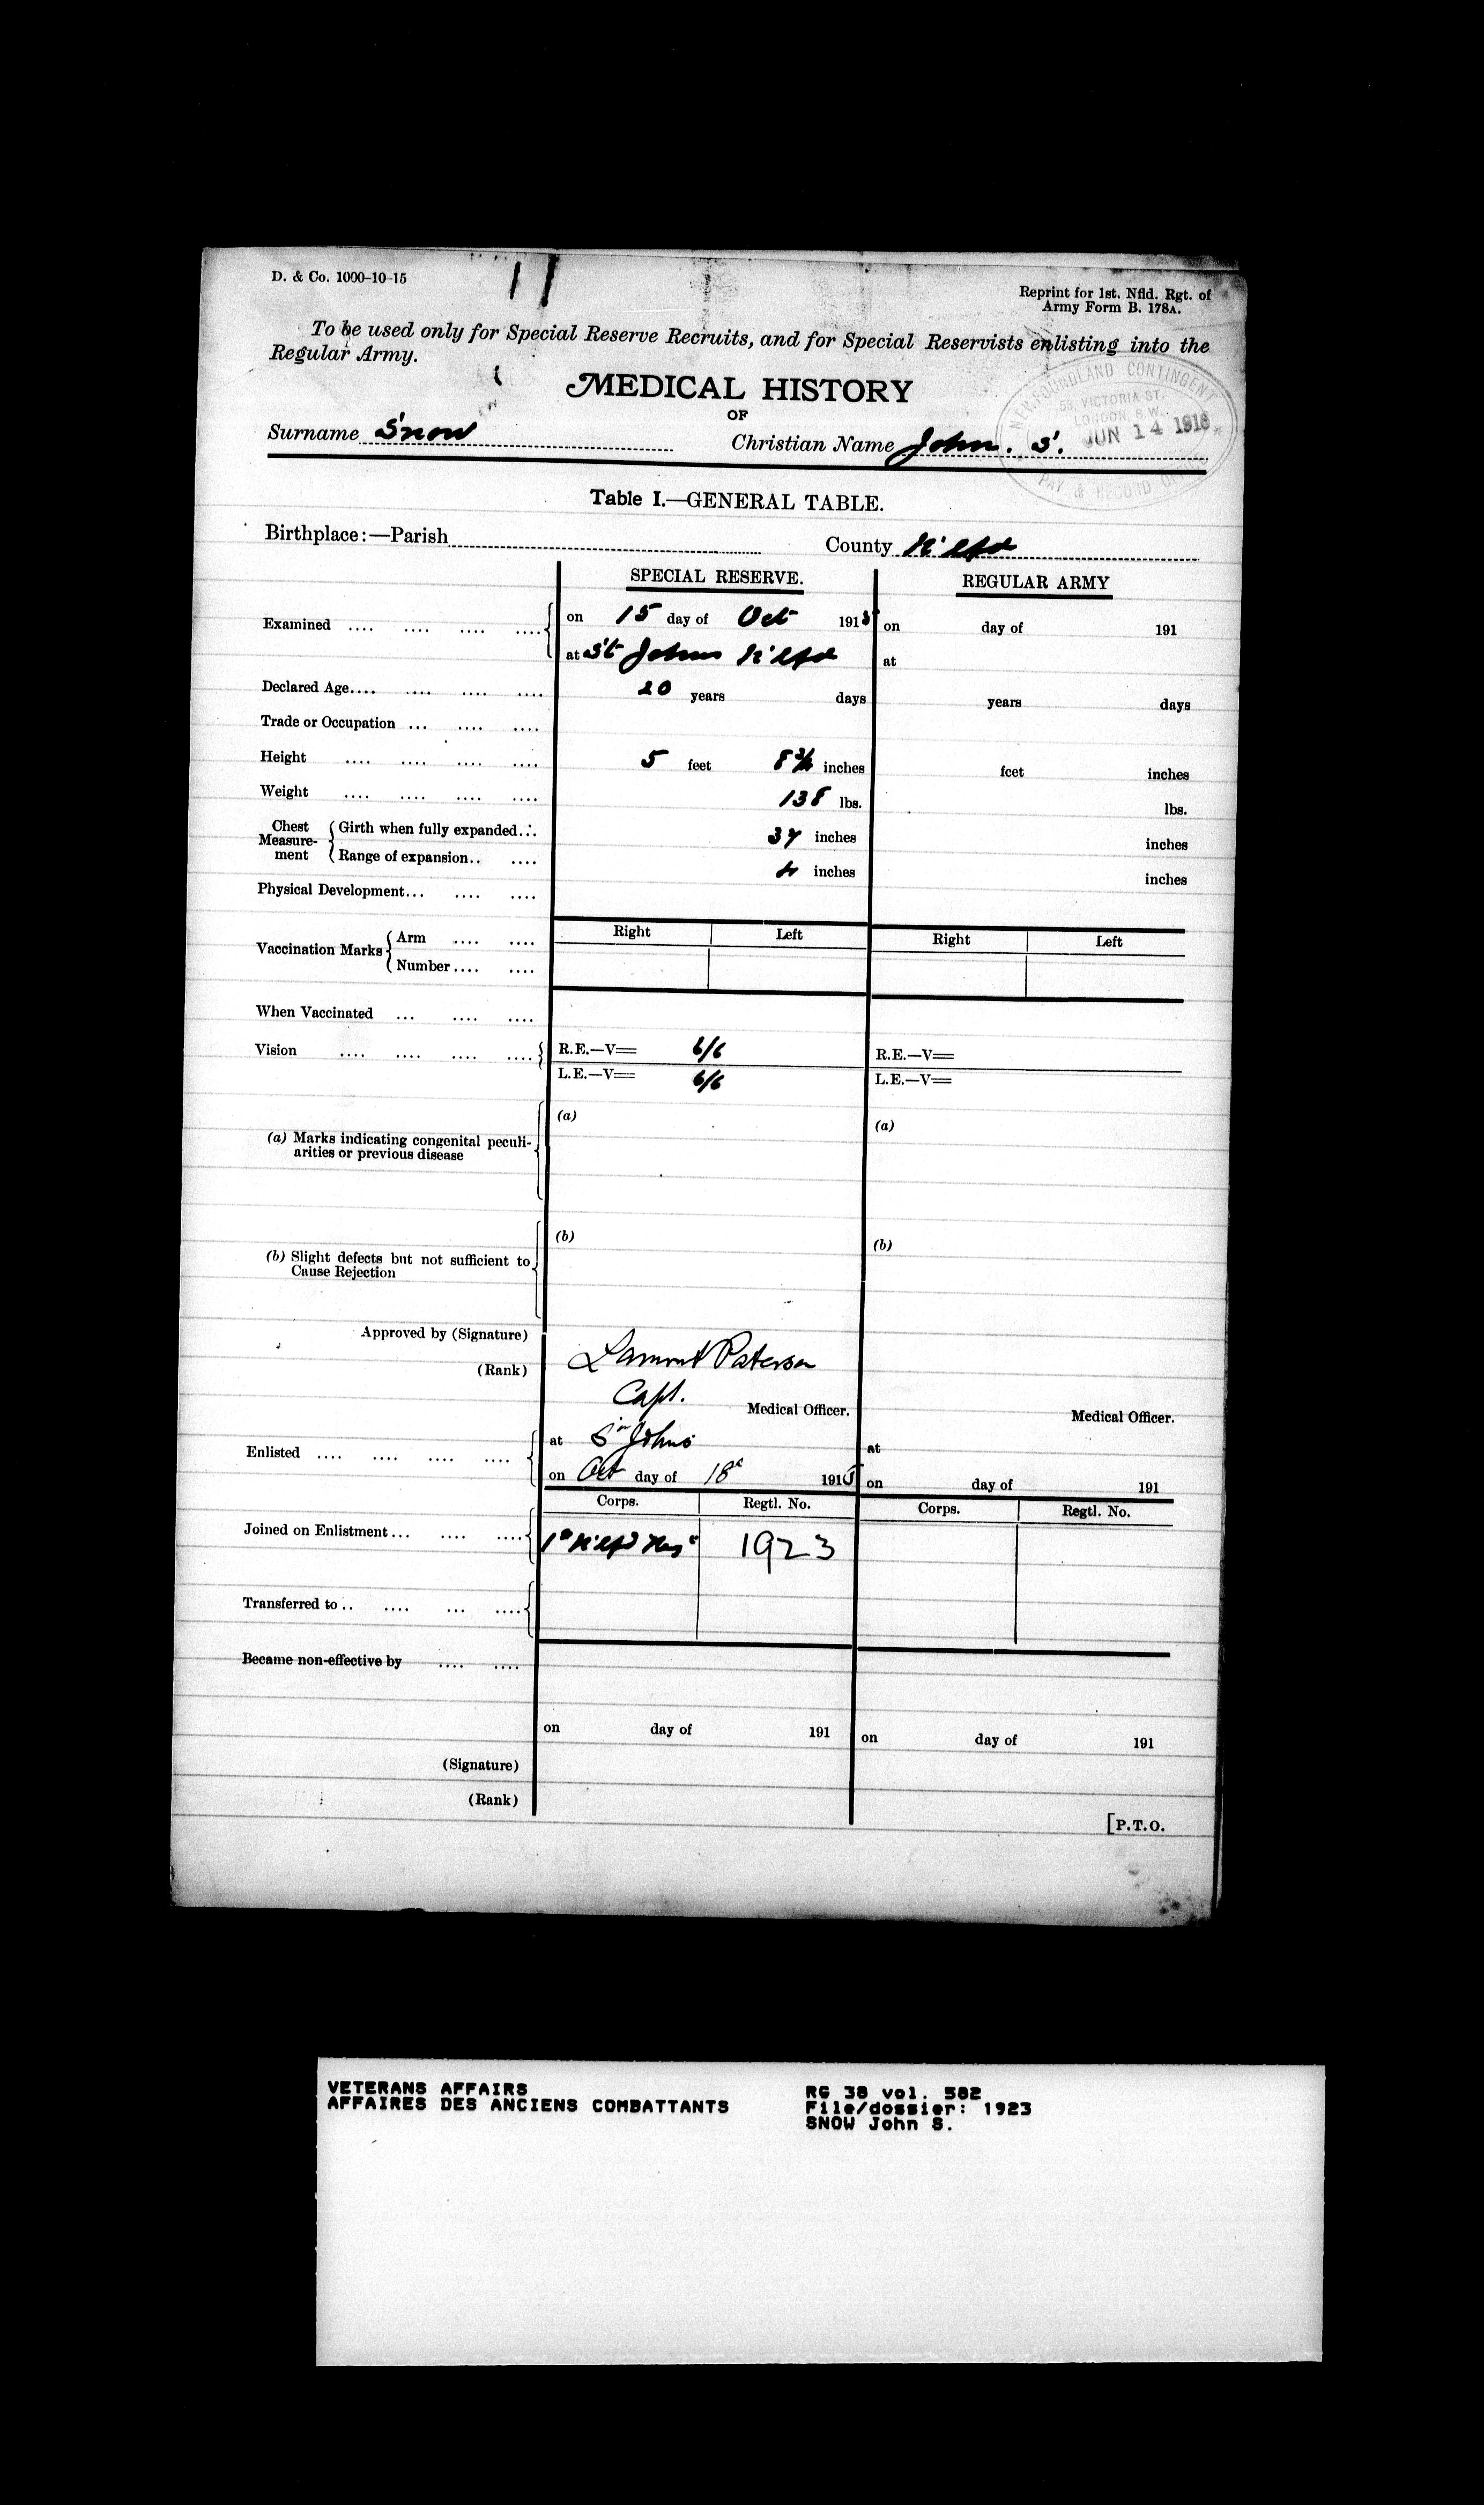 D. & Co. 1000-10-15
Reprint for 1st. Nfld. Rgt. of
Army Form B. 178A.
To be used only for Special Reserve Recruits, and for Special Reservists enlisting into the
Regular Army.
MEDICAL HISTORY
OF
Surname Snow Christian Name John. S.
NEWFOUNDLAND CONTINGENT
58, VICTORIA ST.
LONDON, S.W.
JUN 14 1916
PAY & RECORD OFFICE
Table I.—GENERAL TABLE.
Birthplace:—Parish County N'fld
SPECIAL RESERVE. REGULAR ARMY
Examined .... .... .... .... on 15 day of Oct 1915 on day of 191
at St Johns N'fld at
Declared Age.... .... .... .... 20 years days years days
Trade or Occupation ... .... ....
Height .... .... .... .... 5 feet 8 inches feet inches
Weight .... .... .... .... 138 lbs. lbs.
Chest Measurement Girth when fully expanded... 37 inches inches
Range of expansion.. .... 4 inches inches
Physical Development... .... ....
Right Left Right Left
Vaccination Marks Arm .... ....
Number.... ....
When Vaccinated ... .... ....
Vision .... .... .... .... R.E.—V= 6/6 R.E.—V=
L.E.—V= 6/6 L.E.—V=
(a) (a)
(a) Marks indicating congenital peculi-
arities or previous disease
(b) (b)
(b) Slight defects but not sufficient to
Cause Rejection
Approved by (Signature) Lamont Paterson
(Rank) Capt.
Medical Officer. Medical Officer.
Enlisted .... .... .... .... at St Johns at
on Oct day of 18 1915 on day of 191
Corps. Regtl. No. Corps. Regtl. No.
Joined on Enlistment... .... .... 1st N'fld Regt 1923
Transferred to.. .... ... ....
Became non-effective by .... ....
on day of 191 on day of 191
(Signature)
(Rank)
[P.T.O.
VETERANS AFFAIRS RG 38 vol. 582
AFFAIRES DES ANCIENS COMBATTANTS File/dossier: 1923
SNOW John S.